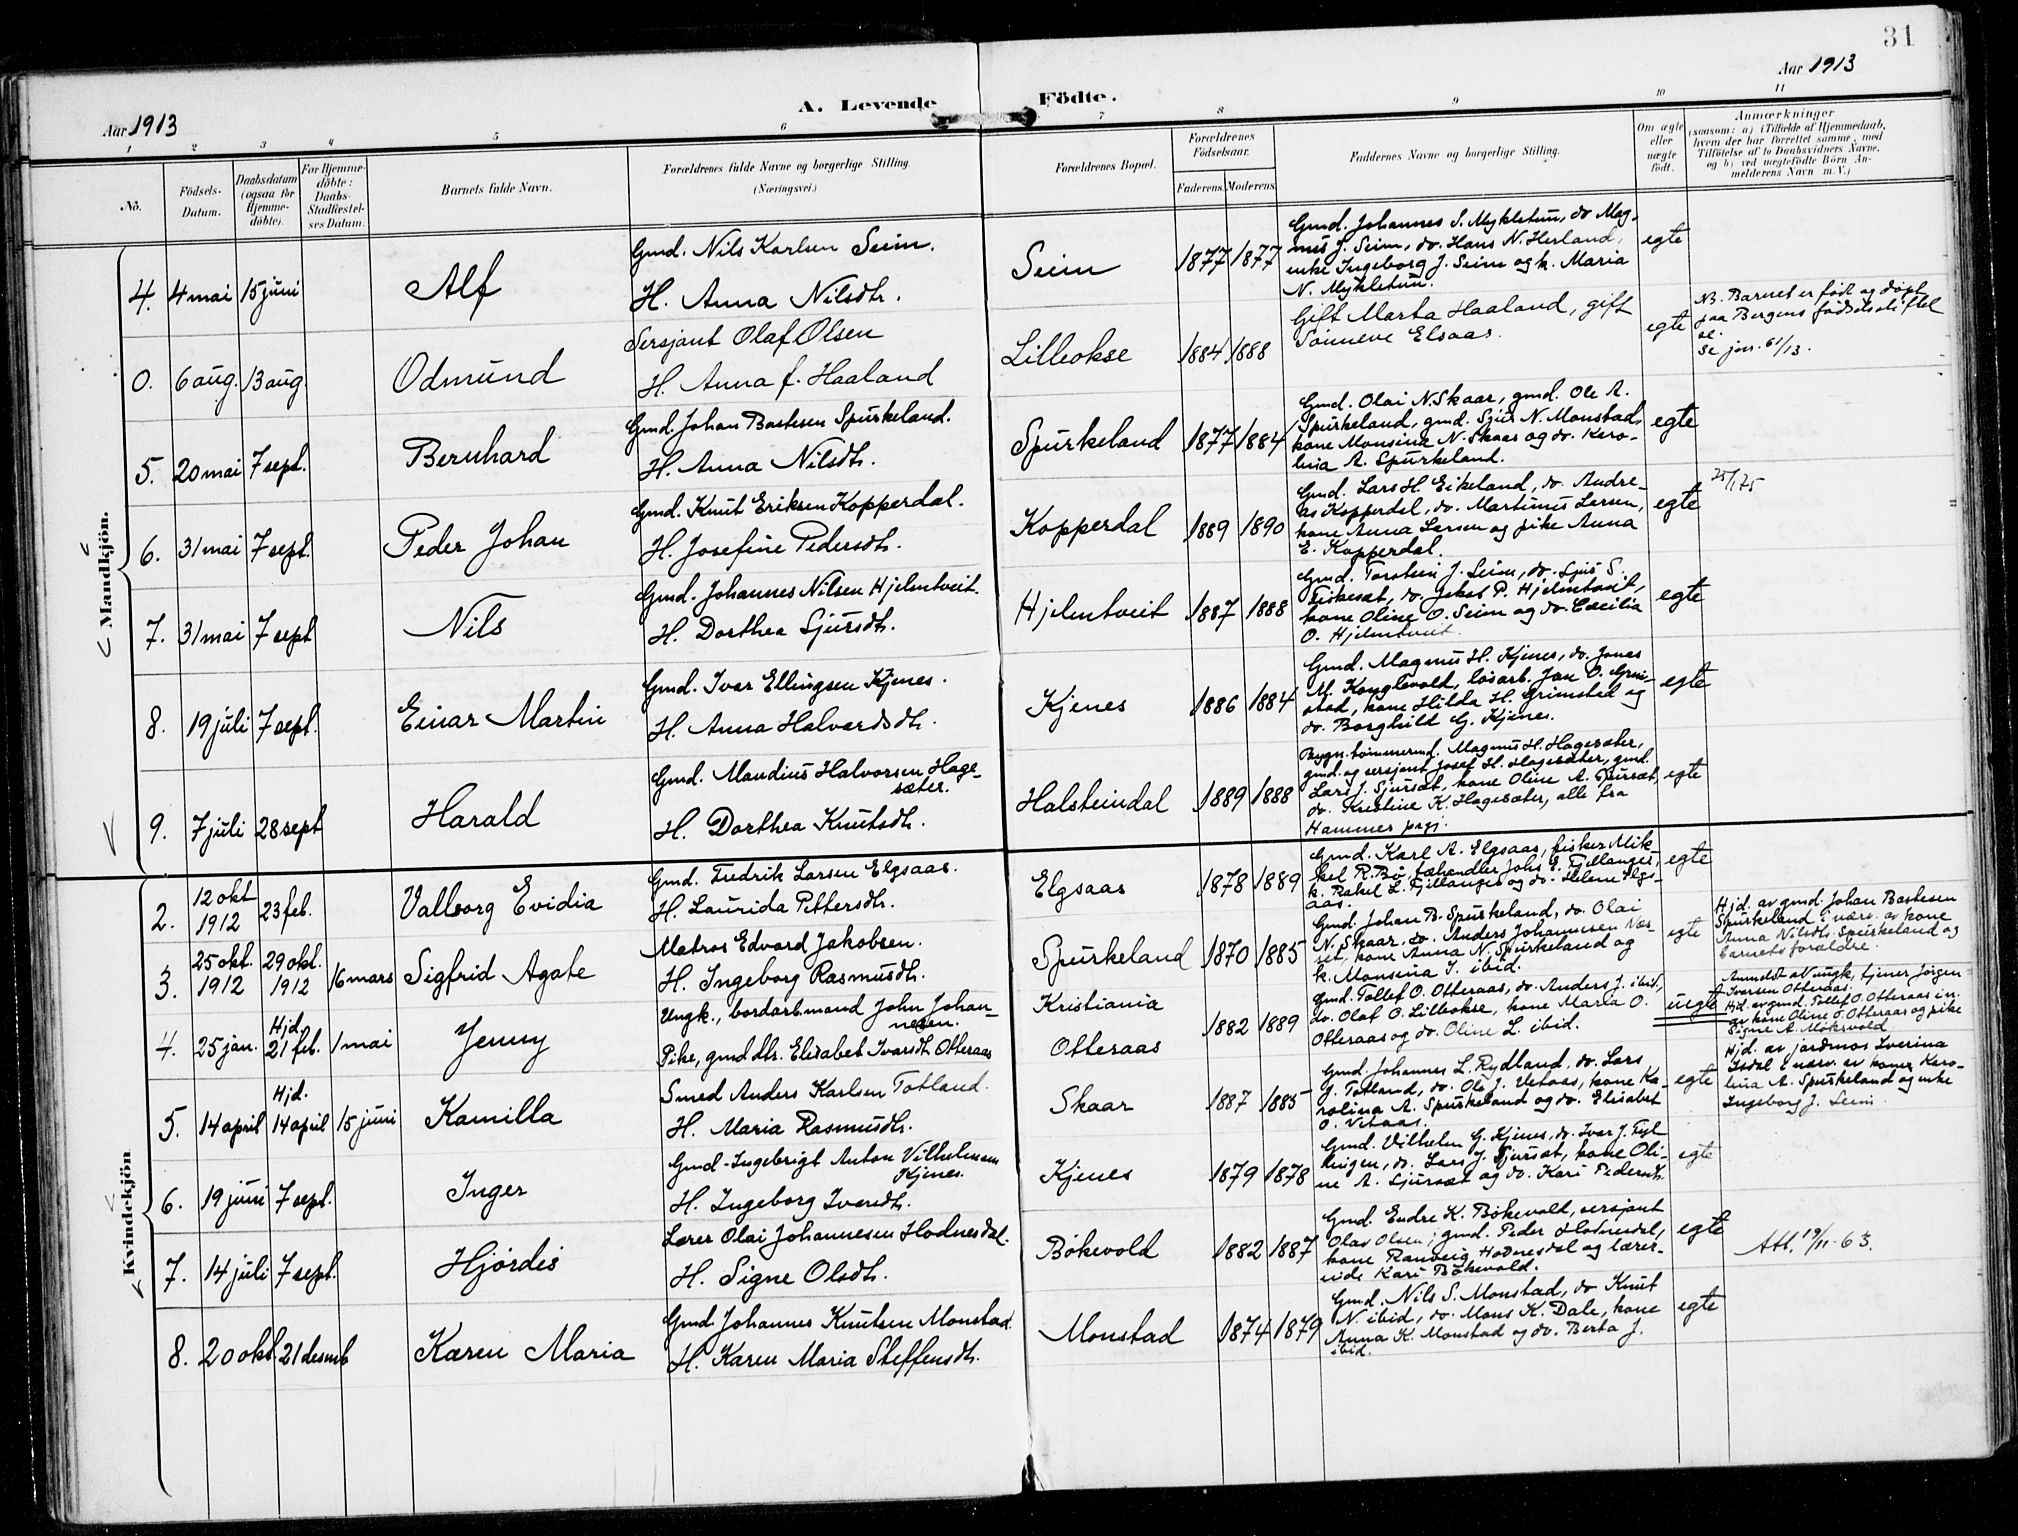 31
Aar 1913
A. Levende Födte.
Aar 1913
1 2 3 4 5 6 7 8 9 10 11
No.
Födsels-Datum.
Daabsdatum (ogsaa for Hjemme-döbte).
For Hjemme-döbte: Daabs-Stadfæstel-ses Datum.
Barnets fulde Navn.
Forældrenes fulde Navne og borgerlige Stilling. (Næringsvei.)
Forældrenes Bopæl.
Forældrenes Födselsaar.
Faderens. Moderens.
Faddernes Navne og borgerlige Stilling.
Om ægte eller uægte födt.
Anmærkninger
(saasom: a) i Tilfælde af Hjemmedaab,
hvem der har forrettet samme, med
Tilföielse af to Daabsvidners Navne,
og b) ved uægtefödte Börn An-
melderens Navn m. V.)
Mandkjön.
4. 4 mai 15 juni Alf
Gmd. Nils Karlsen Seim.
H. Anna Nilsdtr.
Seim 1877 1877
Gmd. Johannes S. Mykletun, do Mag-
nus J. Seim, do. Hans N. Herland,
enke Ingeborg J. Seim og k. Maria
N. Mykletun.
egte
0. 6 aug. 13 aug. Odmund
Sersjant Olaf Olsen
H. Anna f. Haaland
Lilleokse 1884 1888
Gift Marta Haaland, gift
Sønneve Elsaas.
egte
NB. Barnet er født og døpt
paa Bergens fødselsstiftel
se.
Se jor. 61/13.
5. 20 mai 7 sept. Bernhard
Gmd. Johan Bastesen Spurkeland.
H. Anna Nilsdtr.
Spurkeland 1877 1884
Gmd. Olai N. Skaar, gmd. Ole A.
Spurkeland, gmd. Sjur N. Monstad,
kone Monsina N. Skaar og do. Karo-
lina A. Spurkeland.
egte
6. 31 mai 7 sept. Peder Johan
Gmd. Knut Eriksen Kopperdal.
H. Josefine Pedersdtr.
Kopperdal 1889 1890
Gmd. Lars H. Eikeland, do. Andre-
as Kopperdal, do. Martinus Larsen,
kone Anna Larsen og pike Anna
E. Kopperdal.
egte
25/1 75
7. 31 mai 7 sept Nils
Gmd. Johannes Nilsen Hjelmtveit.
H. Dorthea Sjursdtr.
Hjelmtveit 1887 1888
Gmd. Torstein J. Seim, do. Sjur S.
Fiskeset, do. Jakob P. Hjelmtveit,
kone Oline O. Seim og do. Cecilia
O. Hjelmtveit.
egte
8. 19 juli 7 sept. Einar Martin
Gmd. Ivar Ellingsen Kjenes.
H. Anna Halvardsdtr.
Kjenes 1886 1884
Gmd. Magnus H. Kjenes, do. Jonas
M. Konglevold, løsarb. Jan O. Grim-
stad, kone Hilda H. Grimstad og
do. Borghild G. Kjenes.
egte
9. 7 juli 28 sept Harald
Gmd. Mandius Halvorsen Hage-
sæter.
H. Dorthea Knutsdtr.
Halsteindal 1889 1888
Bygn. tømmermd. Magnus H. Hagesæter,
gmd. og sersjant Josef H. Hagesæter, gmd.
Lars J. Sjursæt, kone Oline A. Sjursæt,
do. Kristine K. Hagesæter, alle fra
Hammer pgj.
egte
Kvindekjön
2. 12 okt 1912 23 feb. Valborg Evidia
Gmd. Fredrik Larsen Elgsaas.
H. Laurida Pettersdtr.
Elgsaas 1878 1889
Gmd. Karl A. Elgsaas, fisker Mik-
kel R. Bø, fæhandler Johs E. Fjellanger,
k. Rakel L. Fjellanger og do. Helene Elgs-
aas.
egte
3. 25 okt. 1912 29 okt. 1912 16 mars Sigfrid Agate
Matros Edvard Jakobsen.
H. Ingeborg Rasmusdtr.
Spurkeland 1870 1885
Gmd. Johan B. Spurkeland, do. Olai
N. Skaar, do. Anders Johannesen Næs-
set, kone Anna N. Spurkeland og
k. Monsina T. ibid.
egte
Hjd. av gmd. Johan Bastesen
Spurkeland i nærv. av kone
Anna Nilsdtr. Spurkeland og
barnets forældre.
4. 25 jan. Hjd. 21 feb. 1 mai Jenny
Ungk., bordarb.mand John Johan-
nesen.
Pike, gmd dtr. Elisabet Ivarsdtr. Otteraas
Kristiania
Otteraas 1882 1889
Gmd. Tollef O. Otteraas, do. Anders J. ibid,
do. Olaf O. Lilleokse, kone Maria O.
Otteraas og do. Oline L. ibid.
uegte
Anmeldt av ungk, tjener Jørgen
Iversen Otteraas.
Hjd. av gmd. Tollef O. Otteraas i n.
av kone Oline O. Otteraas og pike
Signe A. Mørkvold
5. 14 april Hjd. 14 april 15 juni Kamilla
Smed Anders Karlsen Totland.
H. Maria Rasmusdtr.
Skaar 1887 1885
Gmd. Johannes L. Rydland, do. Lars
J. Totland, do. Ole J. Vetaas, kone Ka-
rolina A. Spurkeland og do. Elisabet
O. Vetaas.
egte
Hjd. av jordmor Iverina
Isdal i nærv. av kone Karo-
lina A. Spurkeland og enke
Ingeborg J. Seim.
6. 19 juni 7 sept. Inger
Gmd. Ingebrigt Anton Vilhelmsen
Kjenes.
H. Ingeborg Iversdtr.
Kjenes 1879 1878
Gmd. Vilhelm G. Kjenes, do. Ivar J. Fyl
lingen, do. Lars J. Sjursæt, kone Oli-
ne A. Sjursæt og do. Kari Pedersdtr.
egte
7. 14 juli 7 sept. Hjørdis
Lærer Olai Johannesen Hodnesdal.
H. Signe Olsdtr.
Bøkevold 1882 1887
Gmd. Endre K. Bøkevold, sersjant
Olav Olsen, gmd. Peder Hodnesdal,
kone Ranveig Hodnesdal og lærer-
inde Kari Bøkevold.
egte
Att. 19/11-63.
8. 20 okt. 21 desmb Karen Maria
Gmd Johannes Knutsen Monstad.
H. Karen Maria Steffensdtr.
Monstad 1874 1879
Gmd. Nils S. Monstad, do Knut
N. ibid, do. Mons K. Dale, kone
Anna K. Monstad og do. Berta J.
ibid.
egte